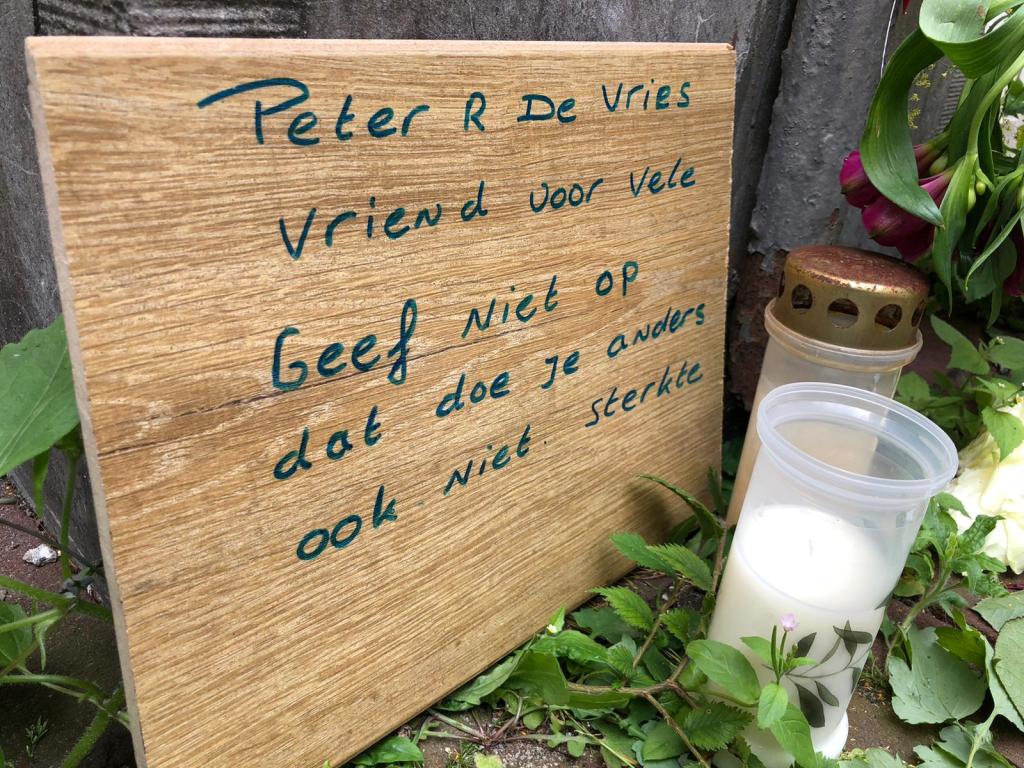 Peter R De Vries
Vriend voor Vele
Geef Niet op
dat doe Je anders
ook. Niet. sterkte